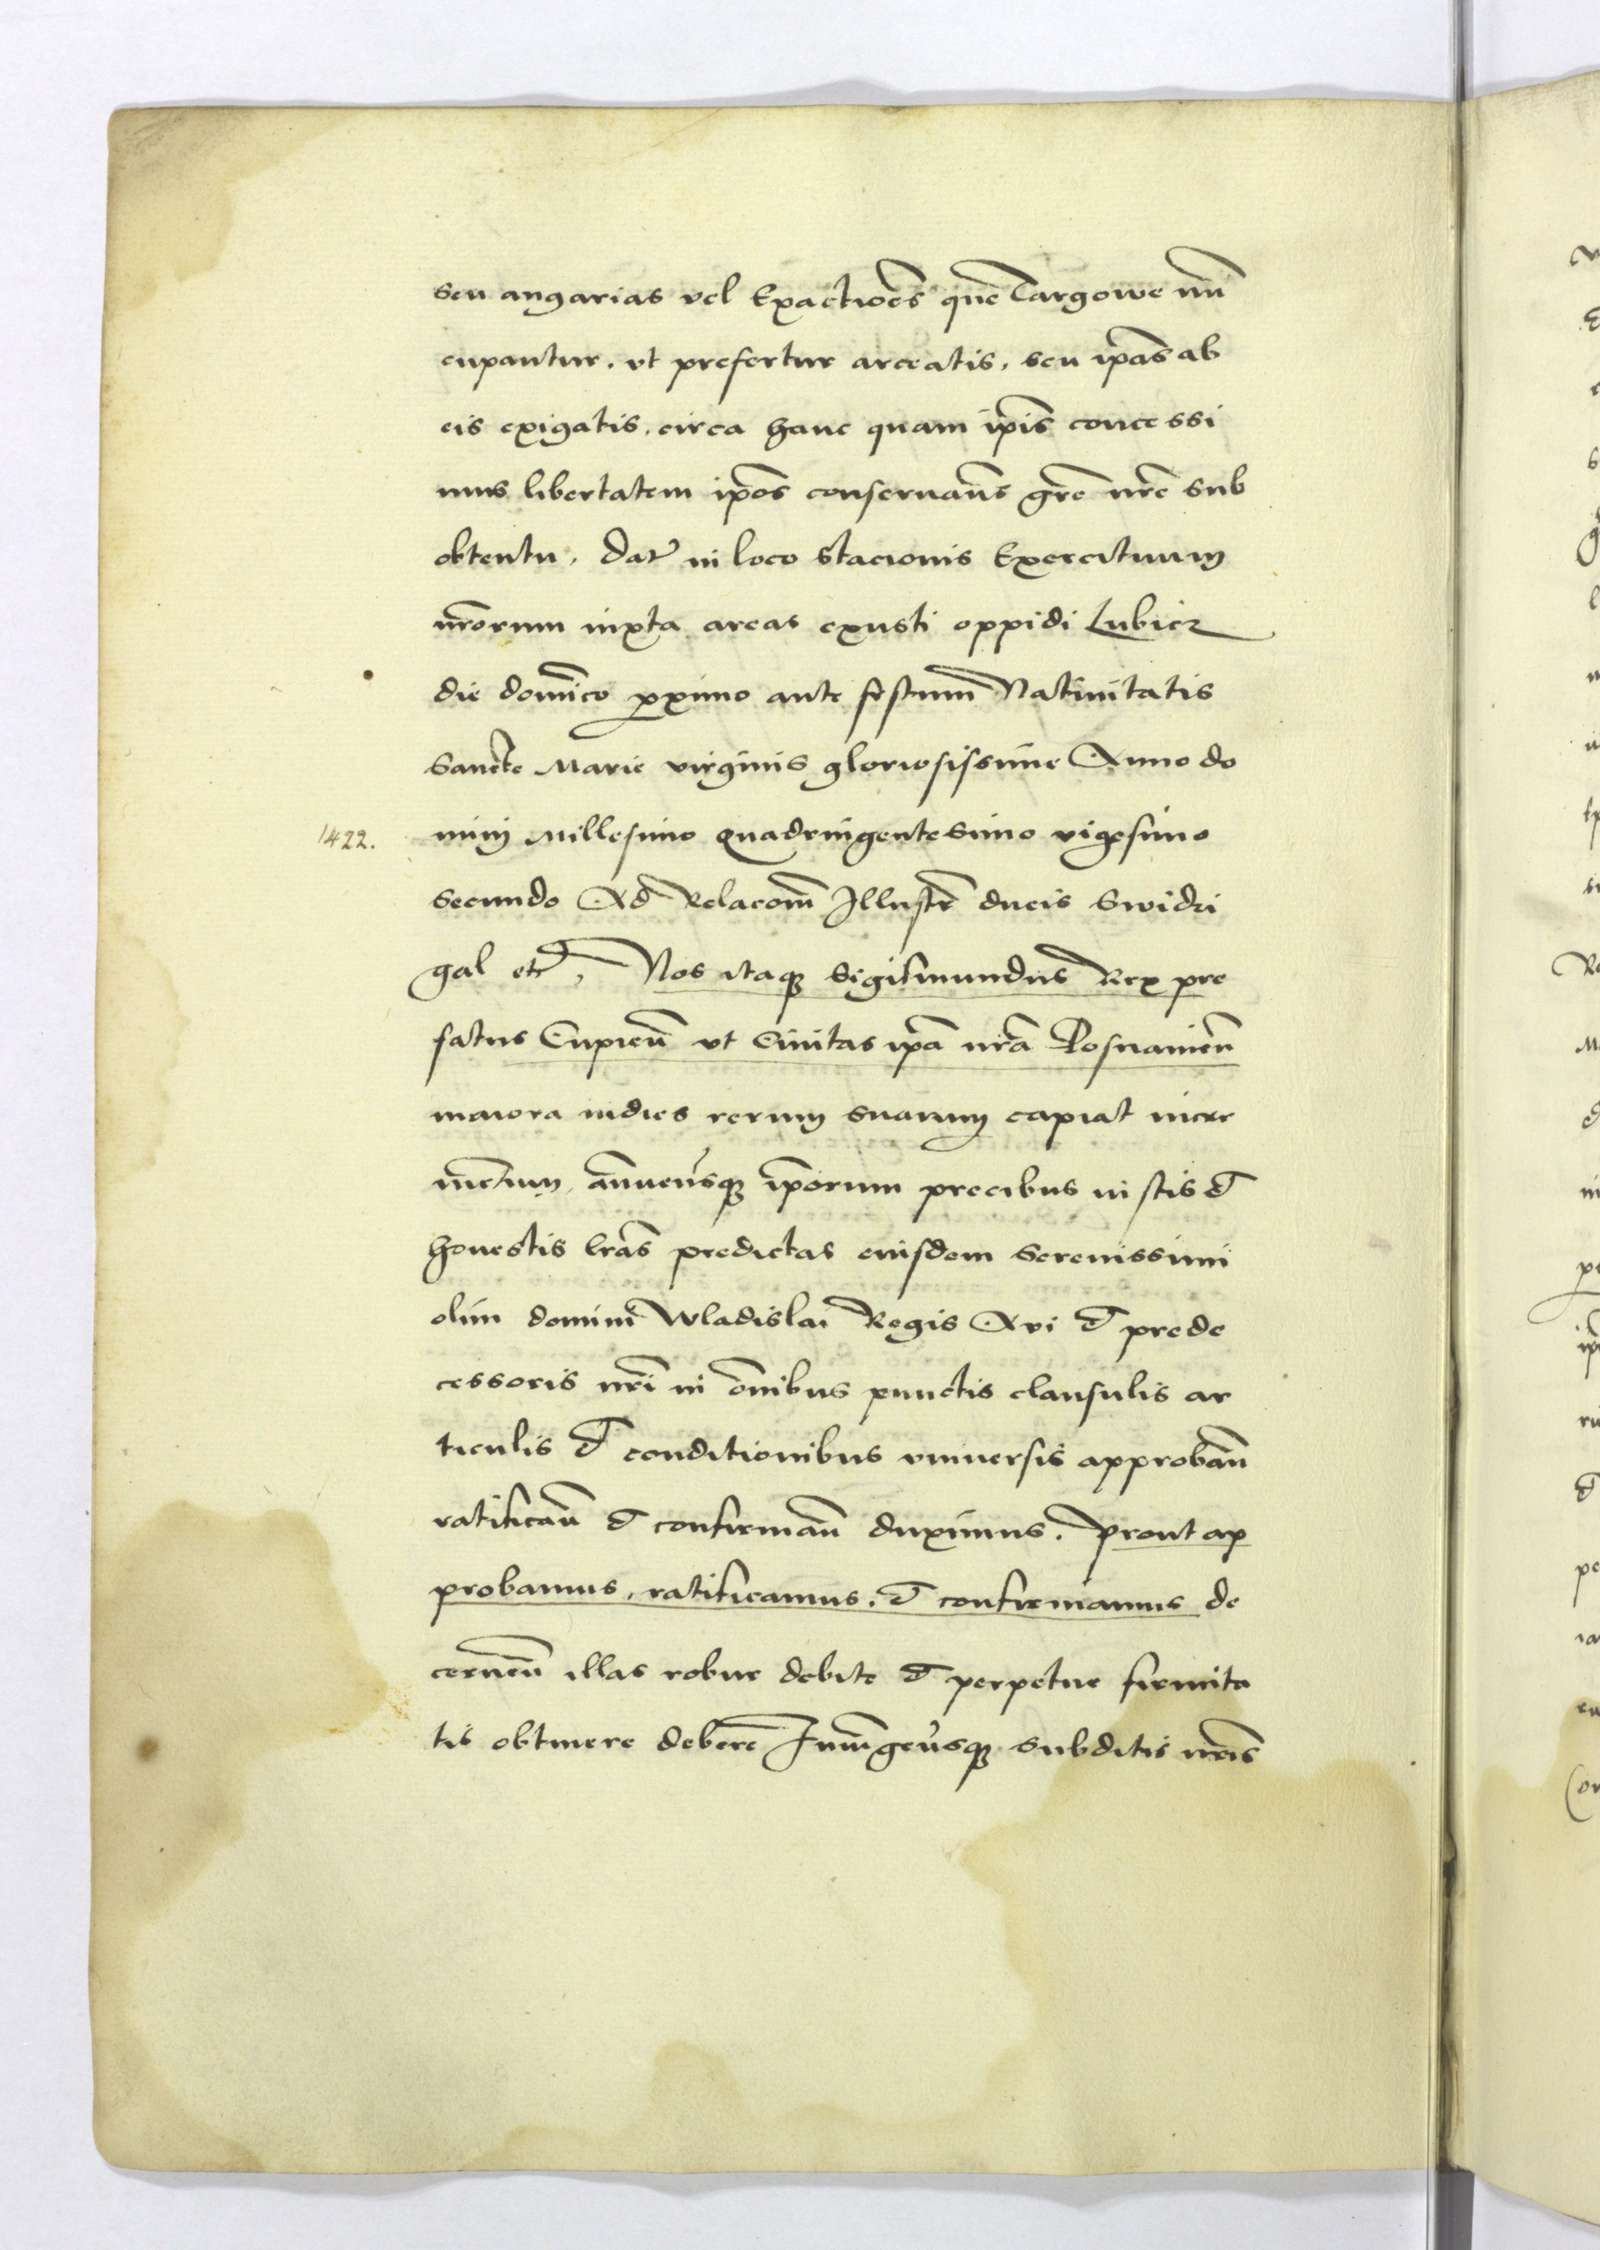 seu angarias vel Exactiōes que Targowe nūn
cupantur. vt prefertur arceatis. seu ipās ab
eis exigatis. circa hanc quam ipīs concessi
mus libertatem ipōs conseruan̄s gr̄e nr̄e sub
obtentu. Dat̄ in loco stacionis Exercituum
nr̄orum iuxta areas exusti oppidi Lubicz
die domīco proximo ante festum Natiuitatis
Sancte Marie virginis gloriosissime Anno do
1422. minj Millesimo Quadringentesimo vigesimo
secundo Ad Relacōm Illustr̄ ducis Swidri
gal etc̄, Nos itaq; Sigismundus Rex pre
fatus Cupien̄ vt Ciuitas ipā nr̄a Posnanien̄
maiora indies rerum suarum capiat incre
mētum, annuen̄sq; ipōrum precibus iustis &
honestis lr̄as predictas eiusdem Serenissimi
olim domini Wladislai Regis Aui & prede
cessoris nr̄i in ōnibus punctis clausulis ar
ticulis & conditionibus vniuersis approban̄
ratifican̄ & confirman̄ duximus. Prout ap
probamus, ratificamus, & confirmamus de
cernen̄ illas robur debite & perpetue firmita
tis obtinere debere Iniūgen̄sq; subditis nr̄is